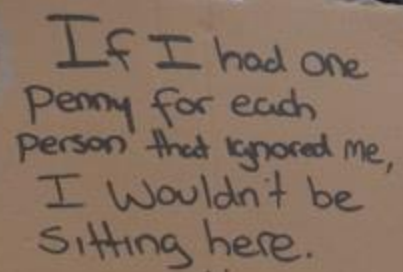 If I had one
penny for each
person that ignored me,
I wouldn't be
sitting here.